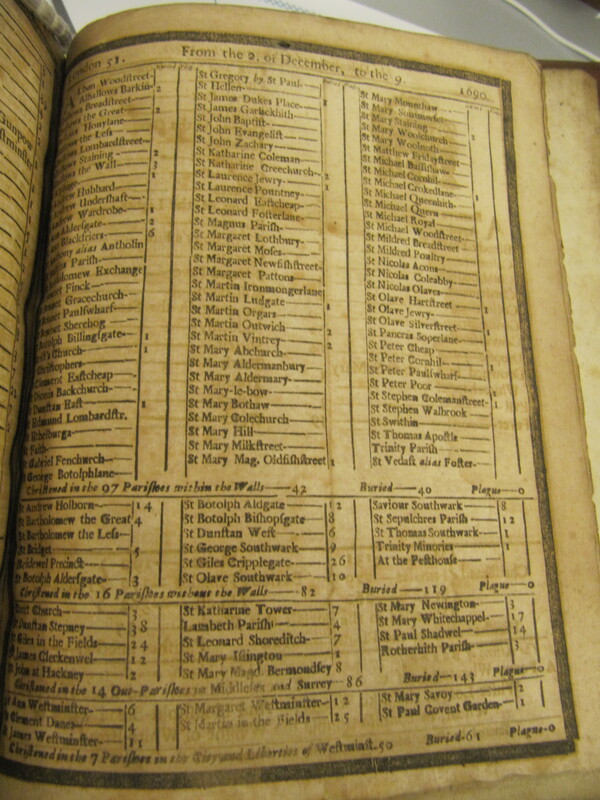 London 51. From the 2. of December, to the 9. 1690.
Alban Woodstreet
Alhallows Barkin 2
Breadstreet
the Great 2
Honylane
the Less
Lombardstreet
Staining 2
the Wall 3
1
Hubbard
Andrew Undershaft
Wardrobe 1
Aldersgate 2
Blackfriers 6
alias Antholin
Parish
Bartholomew Exchange
Finck
Gracechurch
Paulswharf
Sherehog
Botolph Billingsgate 1
Church 1
Christophers
Clement Eastcheap
Dionis Backchurch
Dunstan East 1
Edmund Lombardstr.
Ethelburga
St Faith
St Gabriel Fenchurch
St George Botolphlane
St Gregory by St Paul
St Hellen
St James Dukes Place 1
St James Garlickhith
St John Baptist
St John Evangelist
St John Zachary
St Katharine Coleman
St Katharine Creechurch
St Laurence Jewry 2
St Laurence Pountney 1
St Leonard Eastcheap
St Leonard Fosterlane
St Magnus Parish
St Margaret Lothbury
St Margaret Moses
St Margaret Newfishstreet
St Margaret Pattons
St Martin Ironmongerlane
St Martin Ludgate 1
St Martin Orgars
St Martin Outwich 2
St Martin Vintrey 2
St Mary Abchurch
St Mary Aldermanbury
St Mary Aldermary
St Mary-le-bow
St Mary Bothaw
St Mary Colechurch
St Mary Hill
St Mary Milkstreet
St Mary Mag. Oldfishstreet 1
St Mary Mounthaw
St Mary Sommerset
St Mary Staining
St Mary Woolchurch 1
St Mary Woolnoth
St Matthew Fridaystreet
St Michael Bassishaw
St Michael Cornhil
St Michael Crokedlane
St Michael Queenhith 1
St Michael Quern
St Michael Royal
St Michael Woodstreet
St Mildred Breadstreet
St Mildred Poultry
St Nicolas Acons
St Nicolas Coleabby
St Nicolas Olaves
St Olave Hartstreet
St Olave Jewry 1
St Olave Silverstreet
St Pancras Soperlane 1
St Peter Cheap
St Peter Cornhil
St Peter Paulswharf 1
St Peter Poor
St Stephen Colemanstreet 1
St Stephen Walbrook
St Swithin
St Thomas Apostle
Trinity Parish
St Vedast alias Foster
Christened in the 97 Parishes within the Walls 42 Buried 40 Plague 0
St Andrew Holborn 14
St Bartholomew the Great 4
St Bartholomew the Less
St Bridget 5
Bridewel Precinct
St Botolph Aldersgate 3
St Botolph Aldgate 12
St Botolph Bishopsgate 8
St Dunstan West 6
St George Southwark 9
St Giles Cripplegate 26
St Olave Southwark 10
Saviour Southwark 8
St Sepulchres Parish 12
St Thomas Southwark 1
Trinity Minories 1
At the Pesthouse
Christened in the 16 Parishes without the Walls 82 Buried 119 Plague 0
Christ Church 3
St Dunstan Stepney 38
St Giles in the Fields 24
St James Clerkenwel 12
St John at Hackney 2
St Katharine Tower 7
Lambeth Parish 4
St Leonard Shoreditch 7
St Mary Islington 1
St Mary Magd. Bermondsey 8
St Mary Newington 3
St Mary Whitechappel 17
St Paul Shadwel 14
Rotherhith Parish 3
Christened in the 14 Out-Parishes in Middlesex and Surrey 86 Buried 143 Plague 0
St Ann Westminster 6
St Clement Danes 4
St James Westminster 11
St Margaret Westminster 12
St Martin in the Fields 25
St Mary Savoy 2
St Paul Covent Garden 1
Christened in the 7 Parishes in the City and Liberties of Westminst. 50 Buried 61 Plague 0